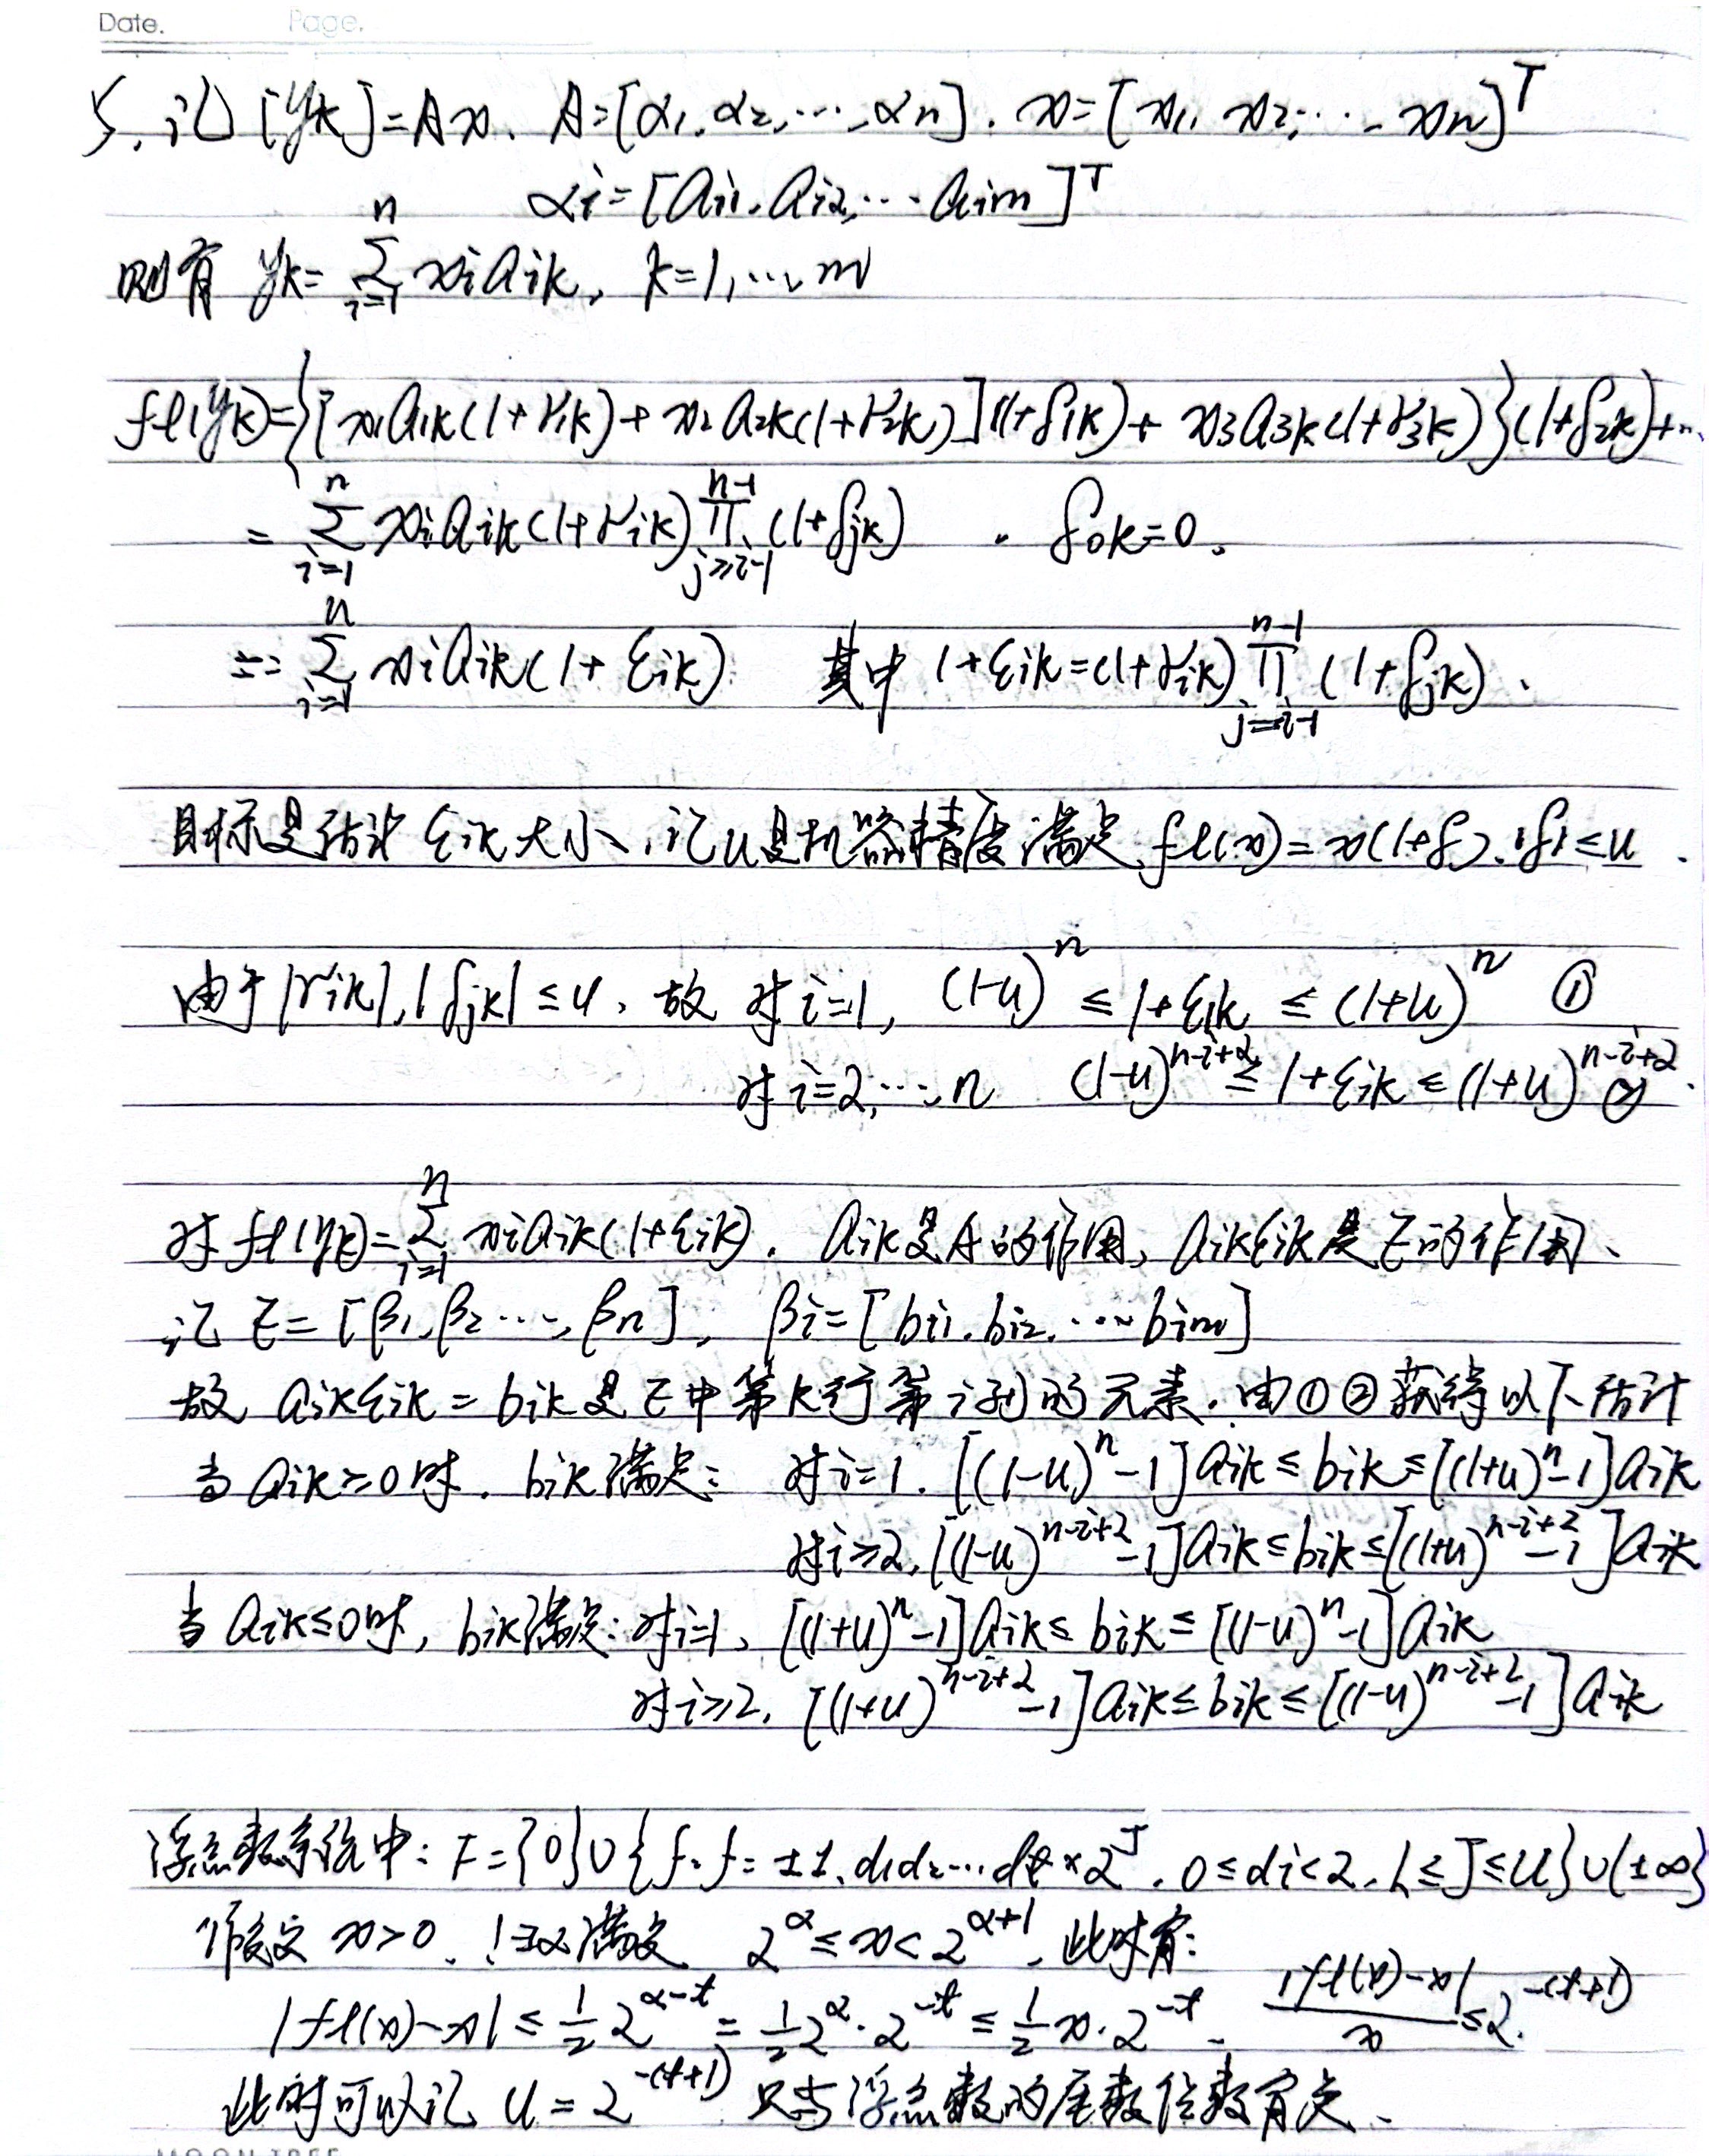 Date. Page.
5. 记 [yk]=Ax. A=[α1, α2, ⋯, αn]. x=[x1, x2, ⋯, xn]^T
αi=[ai1, ai2, ⋯ aim]^T
则有 yk= ∑_{i=1}^{n} xi aik, k=1, ⋯, m
fl(yk)={[x1a1k(1+γ1k)+x2a2k(1+γ2k)](1+δ1k)+x3a3k(1+γ3k)}(1+δ2k)+…
= ∑_{i=1}^{n} xi aik(1+γik) ∏_{j≥i-1}^{n-1} (1+δjk) . δ0k=0.
=: ∑_{i=1}^{n} xi aik(1+εik) 其中 1+εik=(1+γik) ∏_{j=i-1}^{n-1} (1+δjk).
目标是估计 εik 大小, 记u是机器精度满足 fl(x)=x(1+δ). |δ|≤u.
由于 |γik|, |δjk|≤u, 故 对 i=1, (1-u)^n ≤ 1+ε1k ≤ (1+u)^n ①
对 i=2, ⋯, n (1-u)^{n-i+2} ≤ 1+εik ≤ (1+u)^{n-i+2} ②.
对 fl(yk)= ∑_{i=1}^{n} xi aik(1+εik). aik是A的作用, aikεik是E的作用.
记 E=[β1, β2 ⋯, βn], βi=[bi1, bi2, ⋯ bim]
故 aikεik = bik 是 E 中第k行第i列的元素. 由①②获得以下估计
当 aik≥0时, bik满足: 对i=1. [(1-u)^n-1]aik ≤ bik ≤ [(1+u)^n-1]aik
对i≥2, [(1-u)^{n-i+2}-1]aik ≤ bik ≤ [(1+u)^{n-i+2}-1]aik
当 aik≤0时, bik满足: 对i=1, [(1+u)^n-1]aik ≤ bik ≤ [(1-u)^n-1]aik
对i≥2, [(1+u)^{n-i+2}-1]aik ≤ bik ≤ [(1-u)^{n-i+2}-1]aik
浮点数系统中: F={0}∪{f: f=±1.d1d2⋯dt×2^J, 0≤di<2, L≤J≤U}∪{±∞}
假定 x>0, !∃α满足 2^α≤x<2^{α+1}, 此时有:
|fl(x)-x| ≤ 1/2 2^{α-t} = 1/2 2^α·2^{-t} ≤ 1/2 x·2^{-t}. |fl(x)-x|/x ≤ 2^{-(t+1)}.
此时可以记 u=2^{-(t+1)} 只与浮点数的尾数位数有关.
MOON TREE